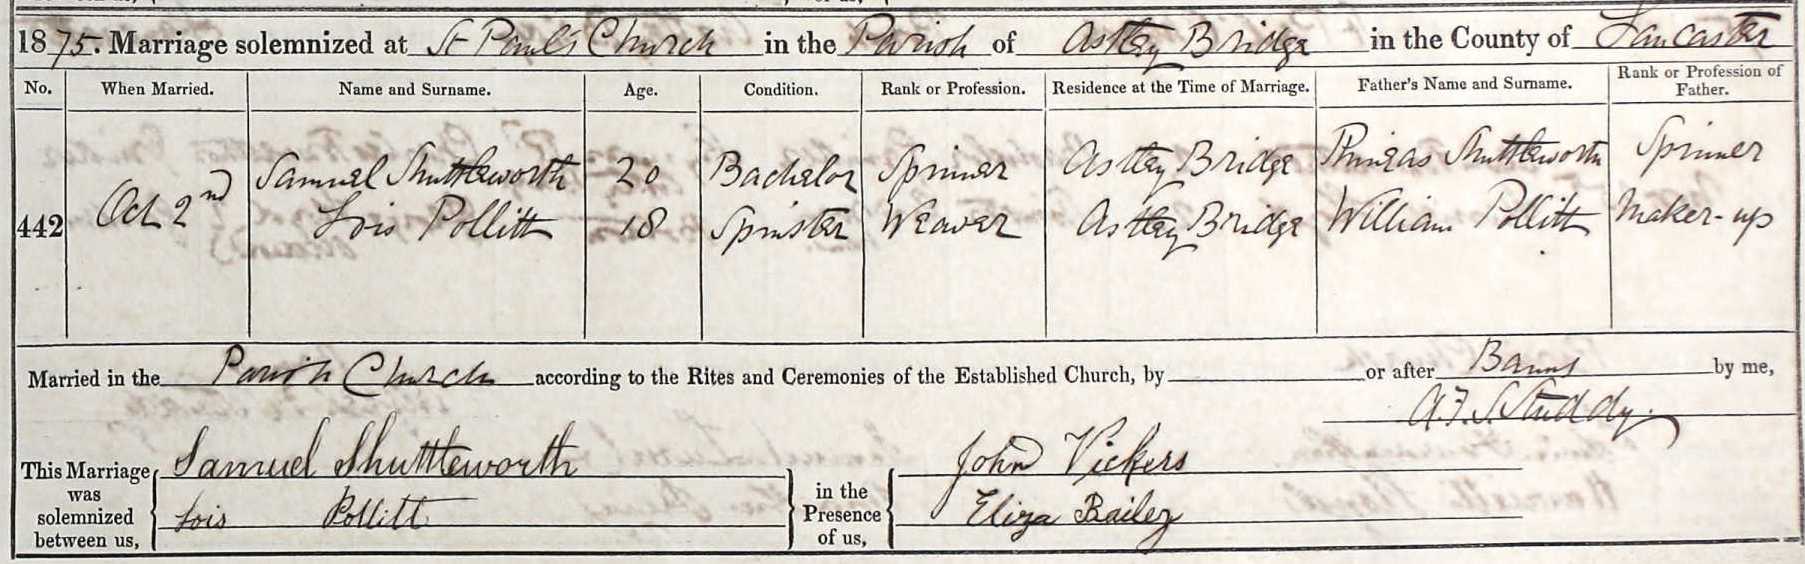 1875. Marriage solemnized at St Paul's Church in the Parish of Astley Bridge in the County of Lancaster
No. When Married. Name and Surname. Age. Condition. Rank or Profession. Residence at the Time of Marriage. Father's Name and Surname. Rank or Profession of Father.
442 Oct 2nd Samuel Shuttleworth 20 Bachelor Spinner Astley Bridge Phineas Shuttleworth Spinner
Lois Pollitt 18 Spinster Weaver Astley Bridge William Pollitt Maker-up
Married in the Parish Church according to the Rites and Ceremonies of the Established Church, by or after Banns by me,
A.F. Studdy.
This Marriage was solemnized between us,
Samuel Shuttleworth
Lois Pollitt
in the Presence of us,
John Vickers
Eliza Bailey